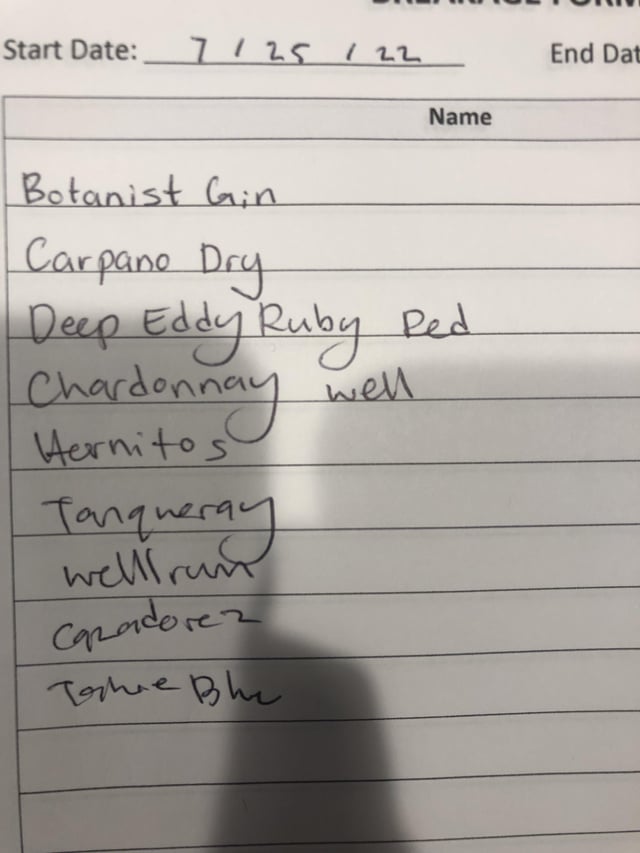 Start Date: 7 / 25 / 22 End Dat
Name
Botanist Gin
Carpano Dry
Deep Eddy Ruby Red
Chardonnay well
Hornitos
Tanqueray
well rum
Cazadorez